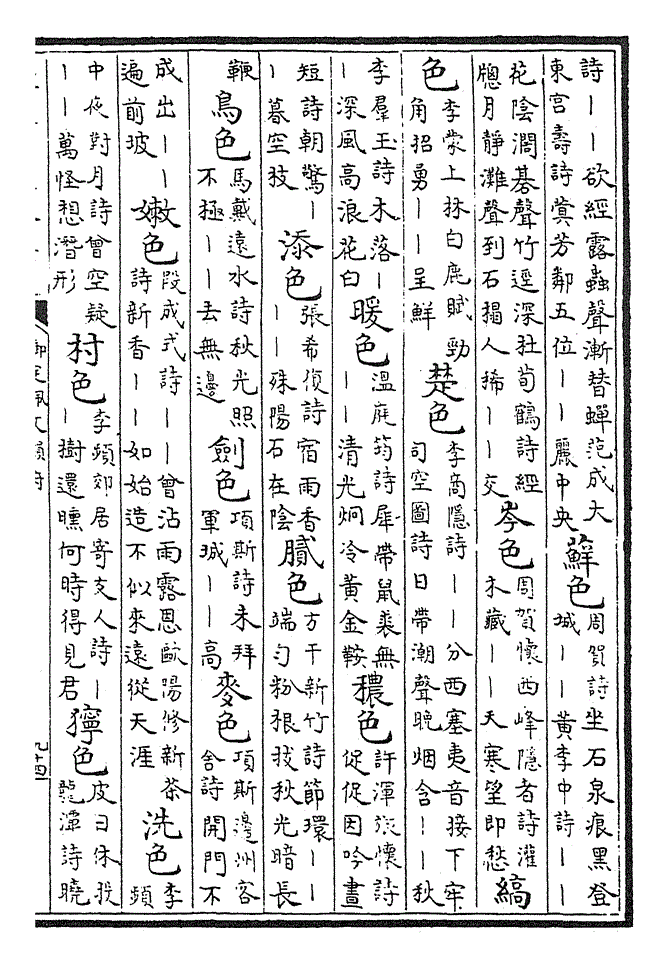 詩——欲經露蟲聲漸替蟬范成大東宮壽詩蓂芳鄰五位——麗中央蘚色周賀詩坐石泉痕黑登城——黃李中詩——
花陰濶碁聲竹逕深杜荀鶴詩經牕月靜灘聲到石搨人稀——交岑色周賀懷西峰隱者詩灌木藏——天寒望即愁縞
色李蒙上林白鹿賦勁角招勇——呈鮮楚色李商隱詩——分西塞夷音接下牢司空圖詩日帶潮聲晚烟含——秋
李羣玉詩木落——深風高浪花白暖色溫庭筠詩犀帶鼠裘無——清光炯冷黃金鞍穠色許渾旅懷詩促促因吟晝
短詩朝驚——暮空枝添色張希復詩宿雨香——殊陽石在陰膩色方干新竹詩節環——端勻粉根拔秋光暗長
鞭鳥色馬戴遠水詩秋光照不極——去無邊劍色項斯詩未拜軍城——高麥色項斯邊州客舍詩開門不
成出——遍前坡嫩色段成式詩——曾沾雨露恩歐陽修新茶詩新香——如始造不似來遠從天涯洗色李頻
中夜對月詩曾空疑——萬怪想潛形村色李頻郊居寄友人詩——樹還曛何時得見君獰色皮日休投龍潭詩曉
九十四